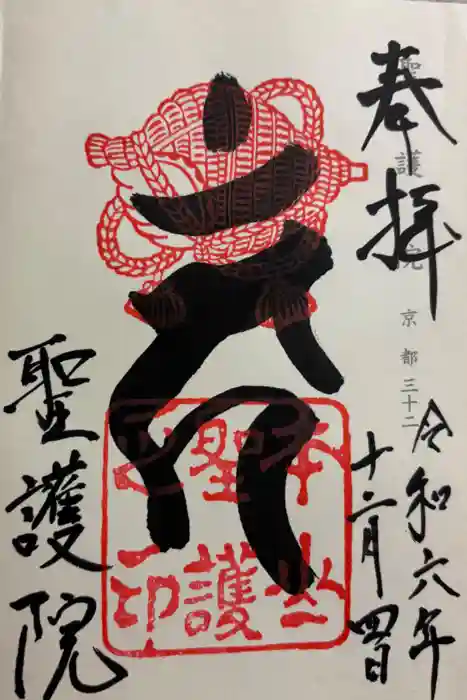 奉拝
聖護院 京都三十二
令和六年
十二月四日
本山
聖護
印
聖護院